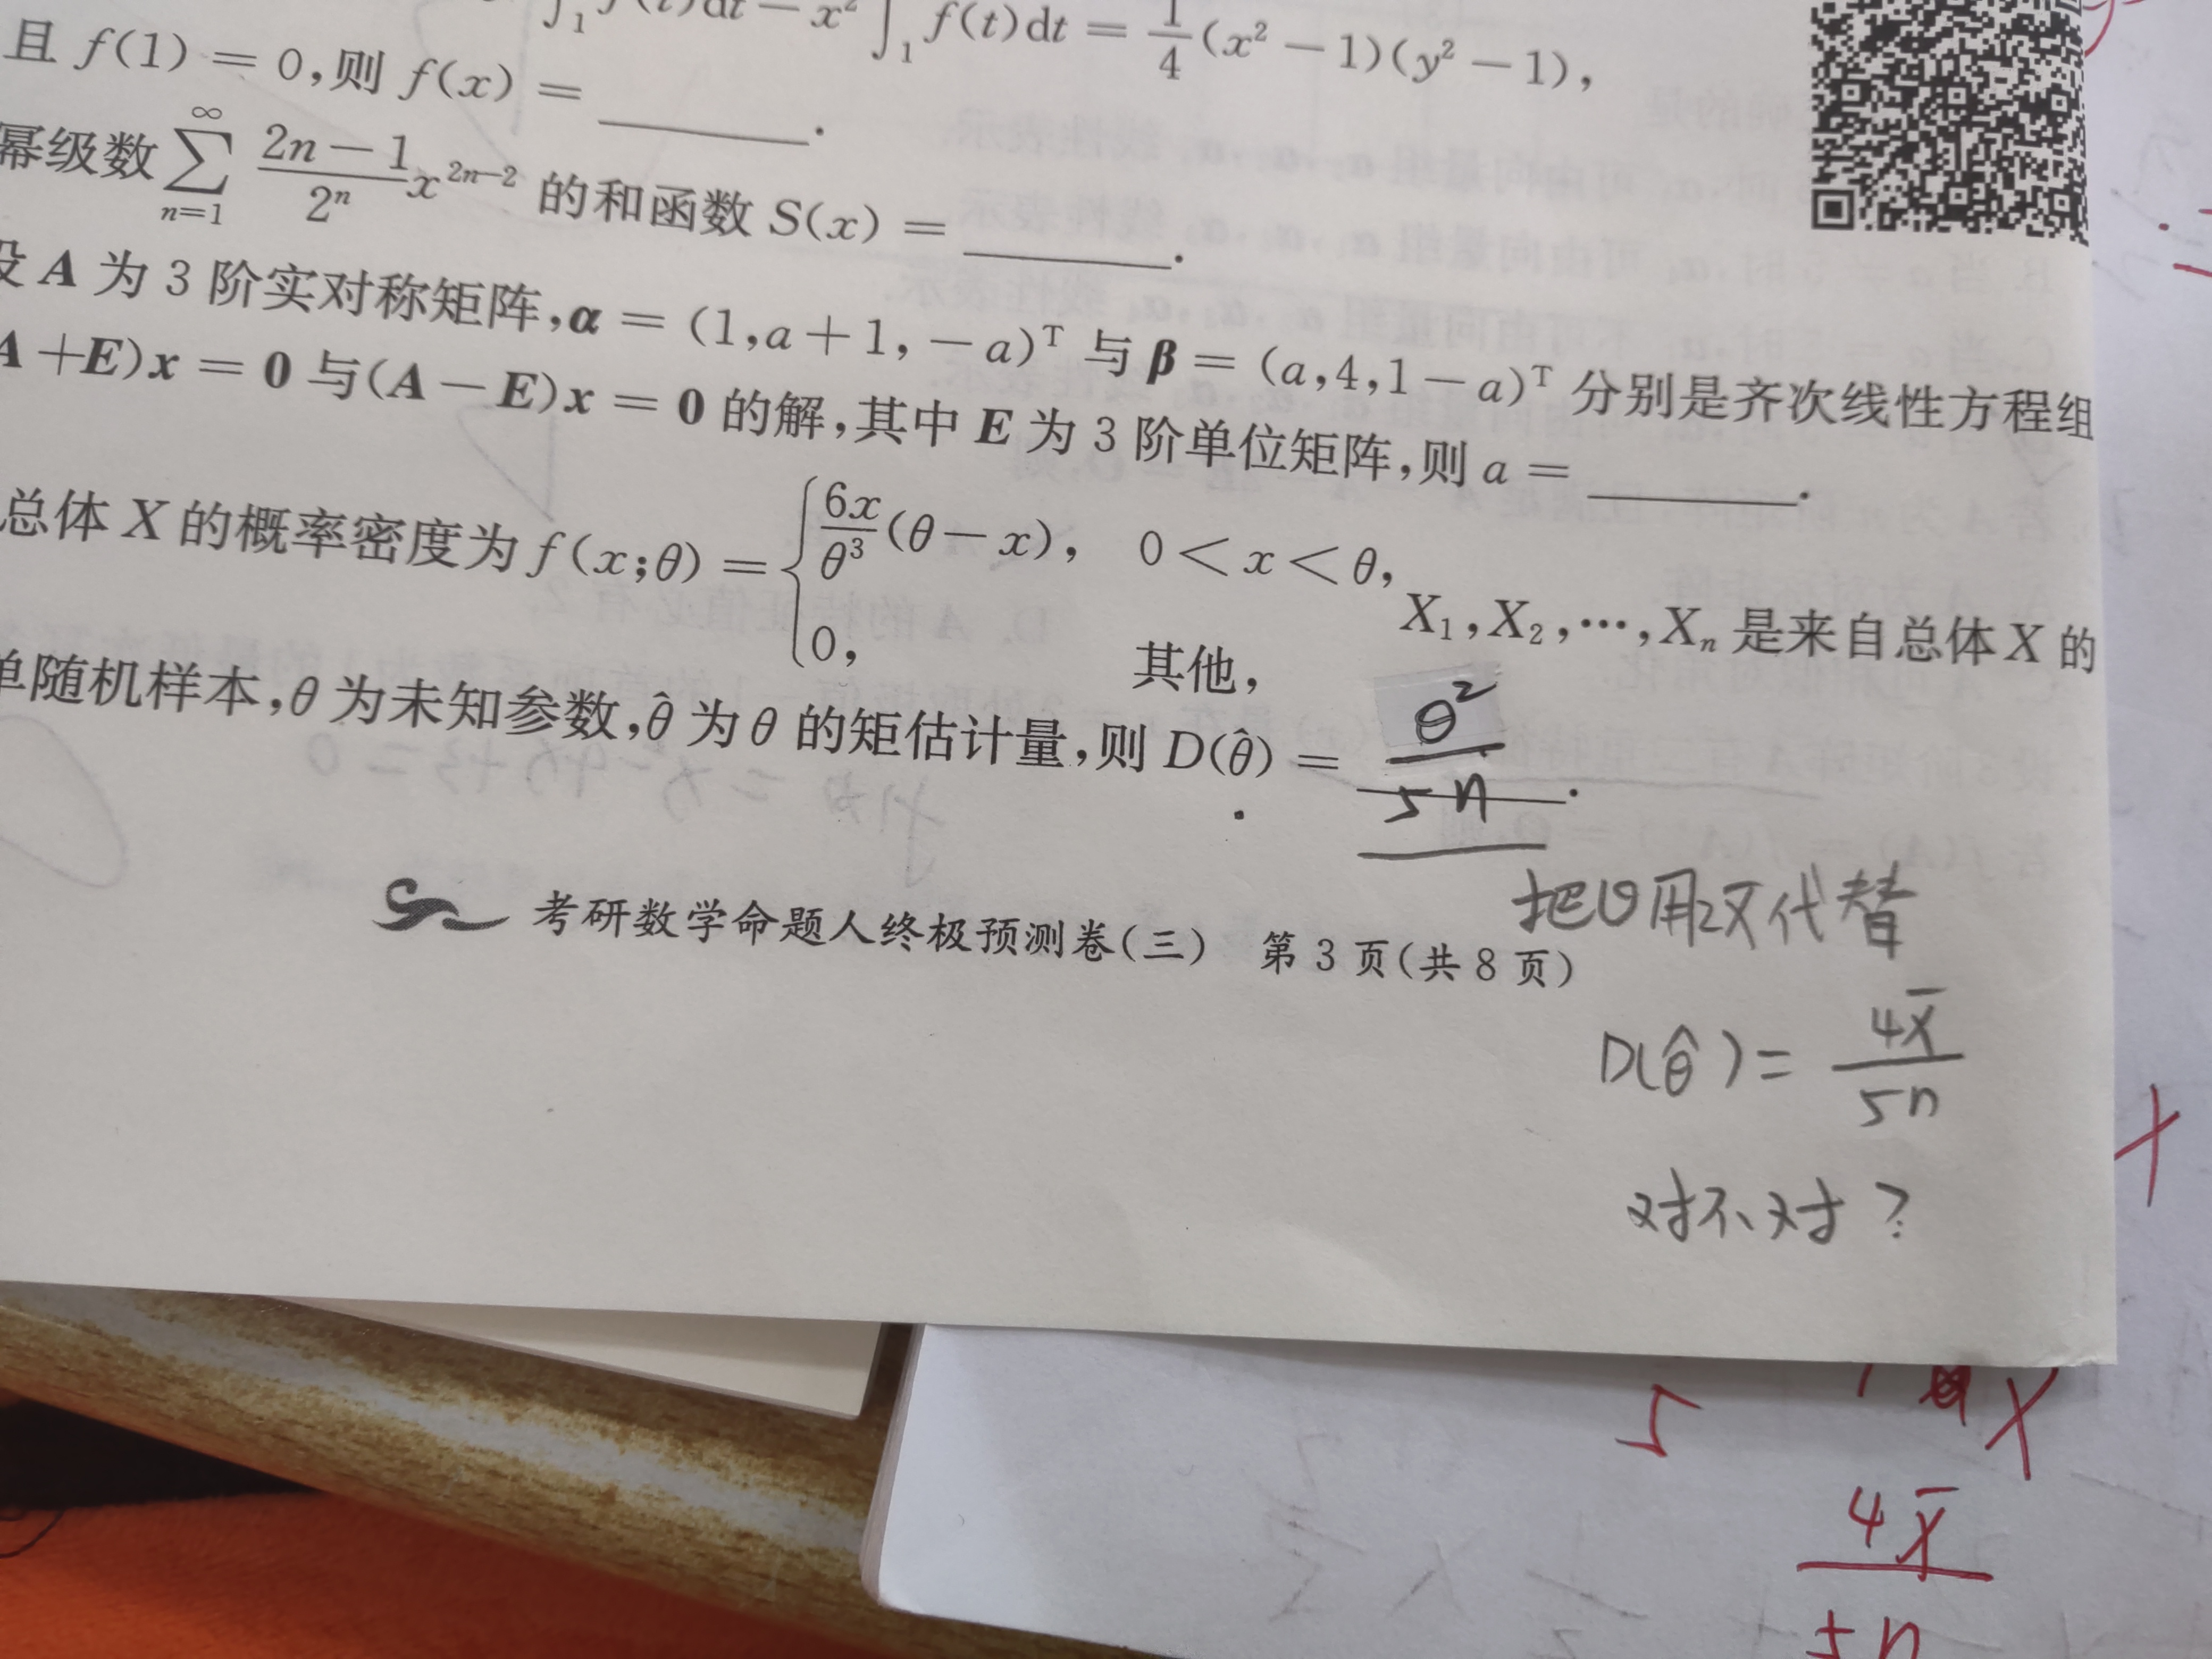 ∫₁ f(t)dt − x² ∫₁ f(t)dt = 1/4 (x² − 1)(y² − 1),
且 f(1) = 0,则 f(x) = ________.
幂级数 ∑_{n=1}^{∞} (2n − 1)/2ⁿ x^{2n−2} 的和函数 S(x) = ________.
设 A 为 3 阶实对称矩阵,α = (1,a+1,−a)ᵀ 与 β = (a,4,1−a)ᵀ 分别是齐次线性方程组
A+E)x = 0 与(A−E)x = 0 的解,其中 E 为 3 阶单位矩阵,则 a = ________.
总体 X 的概率密度为 f(x;θ) = { 6x/θ³ (θ−x), 0<x<θ,
0, 其他, X₁,X₂,⋯,Xₙ 是来自总体 X 的
单随机样本,θ 为未知参数,θ̂ 为 θ 的矩估计量,则 D(θ̂) = θ²/5n.
考研数学命题人终极预测卷(三) 第 3 页(共 8 页)
把θ用2X̄代替
D(θ̂) = 4X̄/5n
对不对?
5
X
4X̄
5n